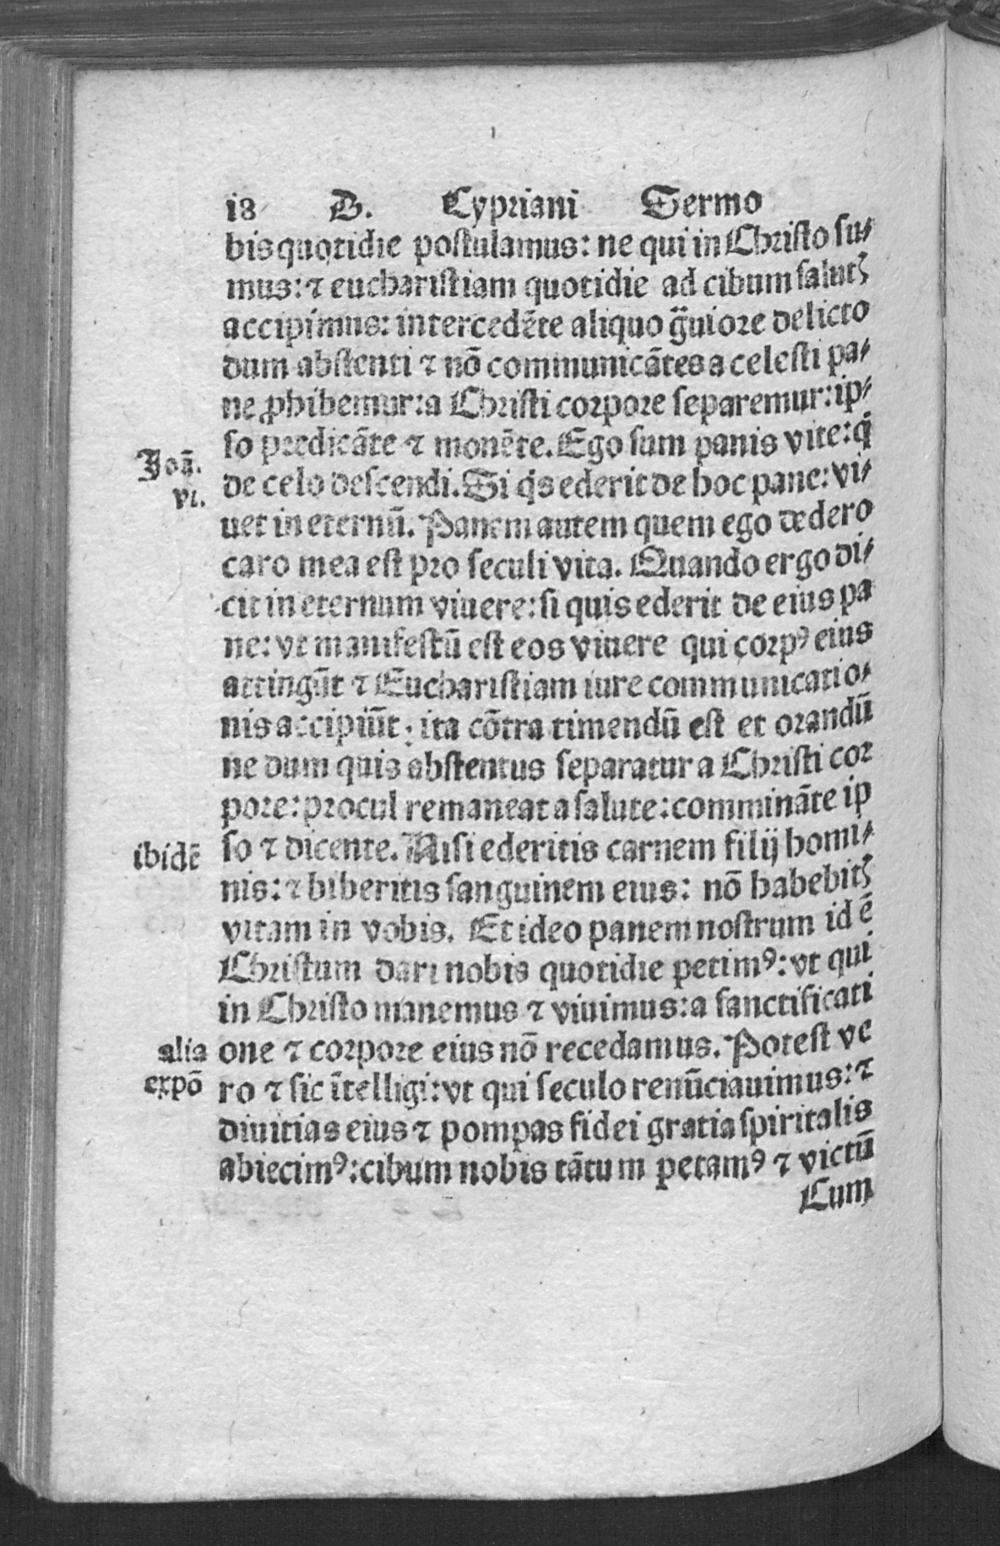 18 D. Cypriani Sermo
bis quotidie postulamus: ne qui in Christo su⸗
mus: ⁊ eucharistiam quotidie ad cibum salutꝭ
accipimus: intercedẽte aliquo g̃uiore delicto
dum abstenti ⁊ nõ communicãtes a celesti pa⸗
ne ꝓhibemur: a Christi corpore separemur: ip⸗
so predicãte ⁊ monẽte. Ego sum panis vite: q̃
Joã. de celo descendi. Si q̃s ederit de hoc pane: vi⸗
vi. uet in eternũ. Panem autem quem ego dedero
caro mea est pro seculi vita. Quando ergo di⸗
cit in eternum viuere: si quis ederit de eius pa
ne: vt manifestũ est eos viuere qui corpꝰ eius
attingũt ⁊ Eucharistiam iure communicatio⸗
nis accipiũt: ita cõtra timendũ est et orandũ
ne dum quis abstentus separatur a Christi cor
pore: procul remaneat a salute: comminãte ip
ibidẽ so ⁊ dicente. Nisi ederitis carnem filij homi⸗
nis: ⁊ biberitis sanguinem eius: nõ habebitꝭ
vitam in vobis. Et ideo panem nostrum id ẽ
Christum dari nobis quotidie petimꝰ: vt qui
in Christo manemus ⁊ viuimus: a sanctificati
alia one ⁊ corpore eius nõ recedamus. Potest ve
expõ ro ⁊ sic ĩtelligi: vt qui seculo renũciauimus: ⁊
diuitias eius ⁊ pompas fidei gratia spiritalis
abiecimꝰ: cibum nobis tãtum petamꝰ ⁊ victũ
Cum